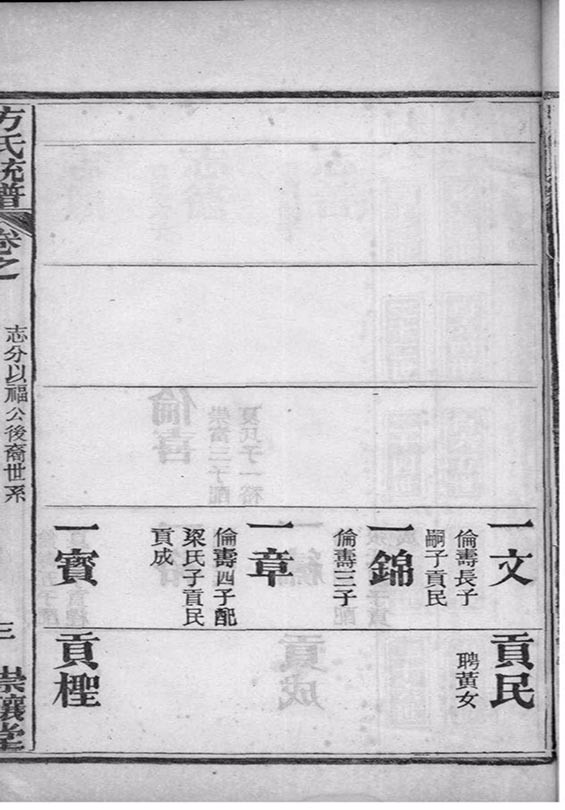 一文
倫壽長子
嗣子貢民
一錦
倫壽三子
一章
倫壽四子配
梁氏子貢民
貢成
一寳
貢民
聘黃女
貢檉
方氏統譜
卷之
志分以福公後裔世系
三
崇讓堂